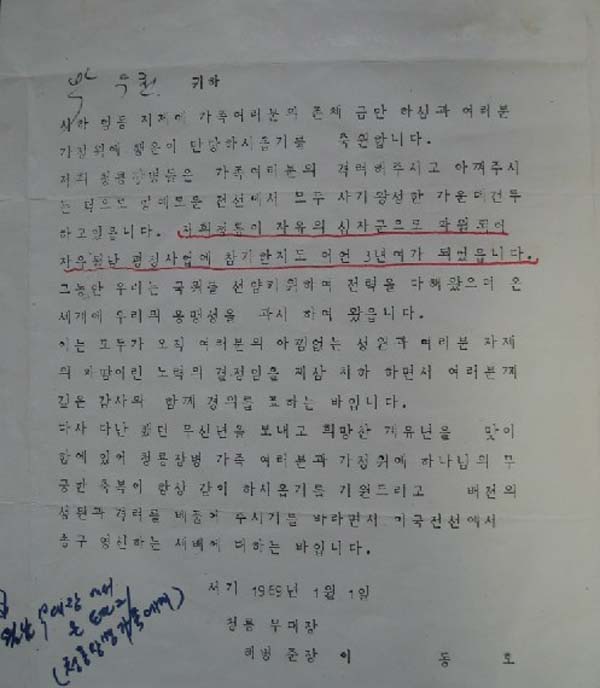 박 우권 귀하
시하 엄동 지제에 가족여러분의 존체 금안 하심과 여러분
가정위에 행운이 만당하시옵기를 축원합니다.
저희 청룡장병들은 가족여러분의 격려해주시고 아껴주시
는 덕으로 전선에서 모두 사기왕성한 가운데전투
하고있읍니다. 저희청룡이 자유의 십자군으로 파월되어
자유월남 평정사업에 참가한지도 어언 3년여가 되었읍니다.
그동안 우리는 국위를 선양키위하여 전력을 다해왔으며 온
세계에 우리의 용맹성을 과시 하여 왔읍니다.
이는 모두가 오직 여러분의 아낌없는 성원과 여러분 자제
의 피땀어린 노력의 결정임을 재삼 치하 하면서 여러분께
깊은 감사와 함께 경의를 표하는 바입니다.
다사 다난 했던 무신년을 보내고 희망찬 기유년을 맞이
함에 있어 청룡장병 가족 여러분과 가정위에 하나님의 무
궁한 축복이 항상 같이 하시옵기를 기원드리고 배전의
성원과 격려를 베풀어 주시기를 바라면서 이국전선에서
송구 영신하는 새벽에 대하는 바입니다.
서기 1969년 1월 1일
청룡 부대장
해병 준장 이 동 호
월남 부대장
(청룡장병가족에게)